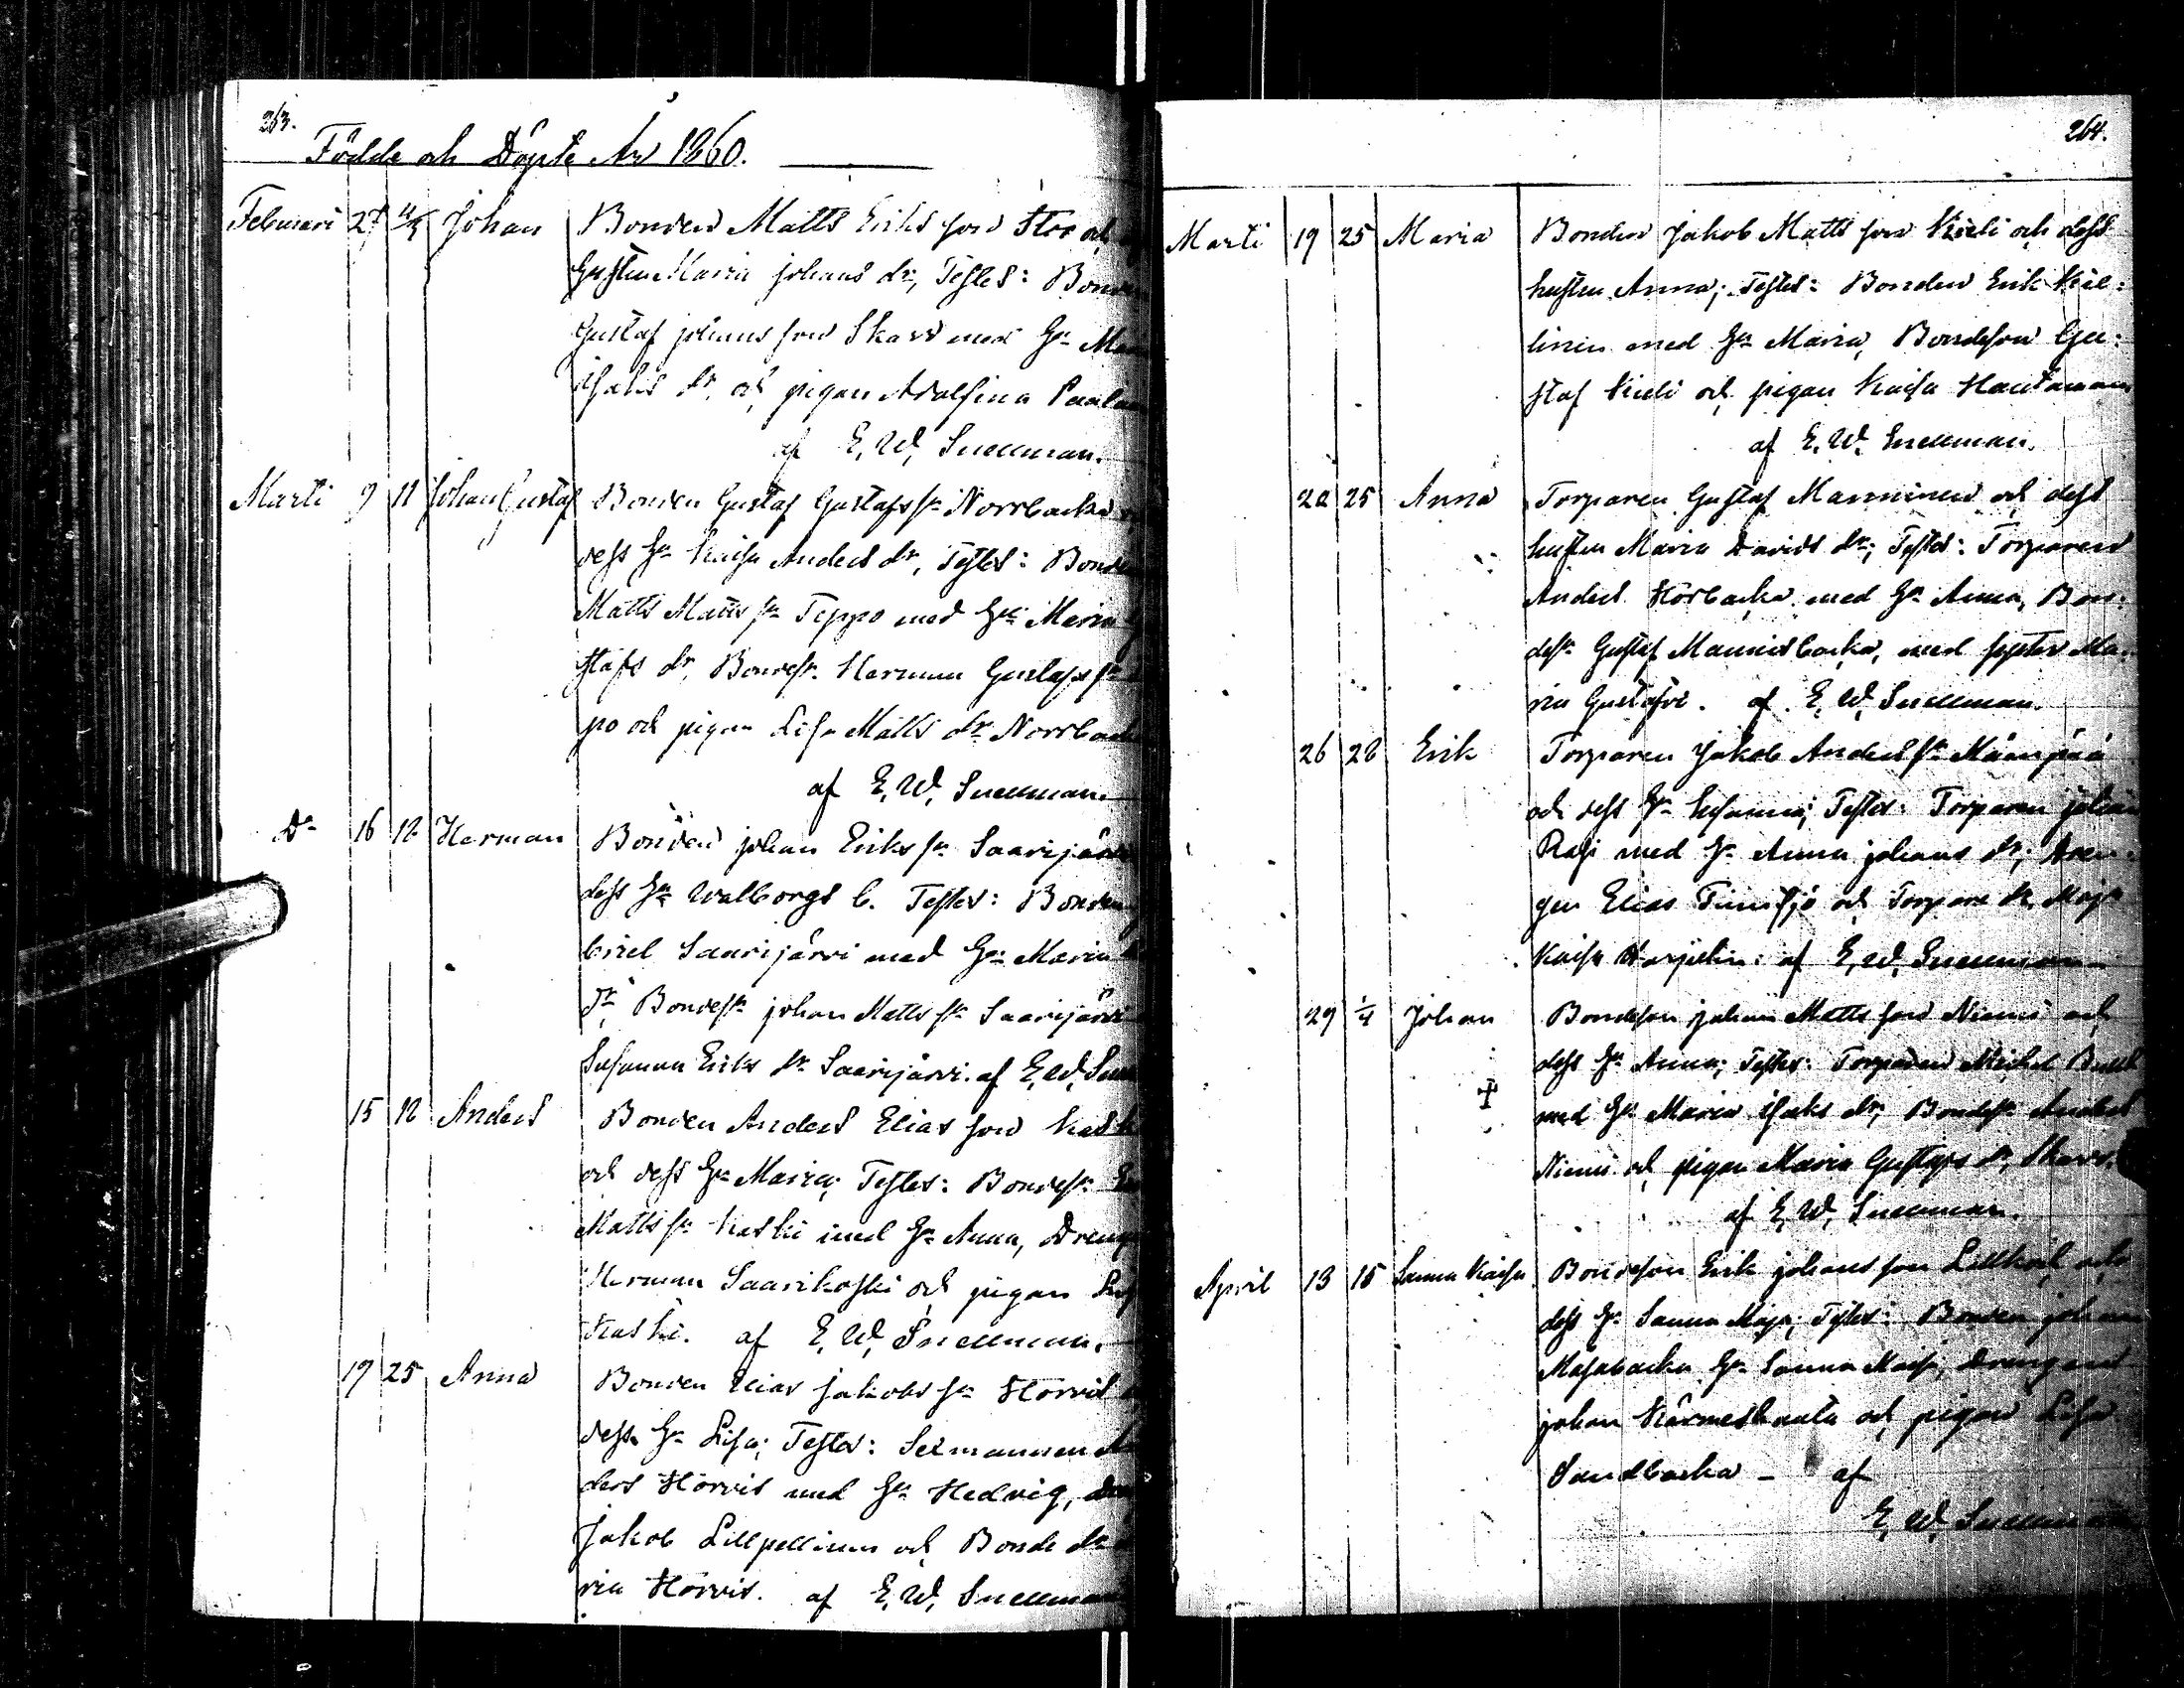 263.
Födde och Döpte År 1860.
Februari 27 11/3 Johan Bonden Matts Eriks son Stor och
hustru Maria Johans dr, Testes: Bonden
Gustaf Johans son Skarv med Hu
Isaks dr, och pigan Adolfina
af E. W. Snellman.
Marti 9 11 Johan Gustaf Bonden Gustaf Gustafs sn Norrbacka
dess Hu Kaisa Anders dr, Testes: Bonden
Matts Matts sn Teppo med Hu Maria
stafs dr, Bondesn Herman Gustafs sn
po och pigan Lisa Matts dr Norrbacka
af E. W. Snellman.
Do 16 18 Herman Bonden Johan Eriks sn Saarijärvi
dess Hu Walborgs b. Testes: Bonden
Saarijärvi med Hu Maria
dr, Bondesn Johan Matts sn Saarijärvi
Susanna Eriks dr Saarijärvi. af E. W. Snell
15 18 Anders Bonden Anders Elias son Kaski
och dess Hu Maria; Testes: Bondesn
Matts sn Kaski med Hu Anna, Dreng
Herman Saarikoski och pigan
Kaski. af E. W. Snellman.
19 25 Anna Bonden Elias Jakobs sn Horvis
dess Hu Lisa; Testes: Sexmannen
ders Horvis med Hu Hedvig,
Jakob Lillpellinen och Bonde dr
ria Horvis. af E. W. Snellman
264.
Marti 19 25 Maria Bonden Jakob Matts son Kieli och dess
hustru Anna; Testes: Bonden Erik Kie-
linen med Hu Maria, Bondeson Gu-
staf Kieli och pigan Kaisa Hautamaa
af E. W. Snellman.
22 25 Anna Torparen Gustaf Manninen och dess
hustru Maria Davids dr; Testes: Torparen
Anders Hörbacka med Hu Anna, Bon-
desn Gustaf Mannisbacka, med syster Ma-
ria Gustafsd. af E. W. Snellman.
26 28 Erik Torparen Jakob Anders sn Määnpää
och dess Hu Susanna; Testes: Torparen Johan
Rasi med Hu Anna Johans dr; Dren-
gen Elias och Torpare dr Maja
Kaisa af E. W. Snellman
29 1/4 Johan Bondeson Johan Matts son Niemi och
dess Hu Anna; Testes: Torparen Michel
med Hu Maria Isaks dr; Bondesn Anders
Niemi och pigan Maria Gustafs dr, Skarv.
af E. W. Snellman.
April 13 15 Sanna Kaisa Bondeson Erik Johans son Lillkåil och
dess Hu Sanna Maja; Testes: Bonden Johan
Masabacka Hu Sanna Kaisa, Drengen
Johan Kärmeshauta och pigan Lisa
Sandbacka - af
E. W. Snellman